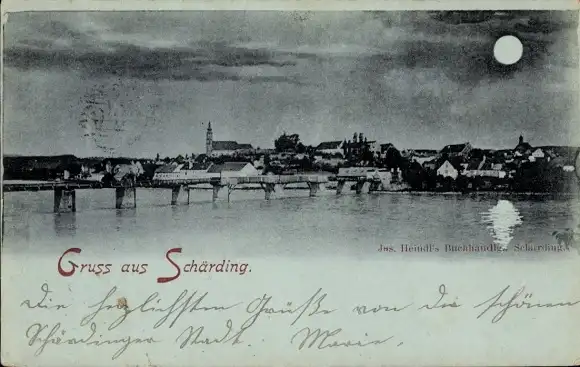 Jos. Heindl's Buchhandlg., Schärding.
Gruss aus Schärding.
Die herzlichsten Grüße von der schönen
Schärdinger Stadt. Marie.